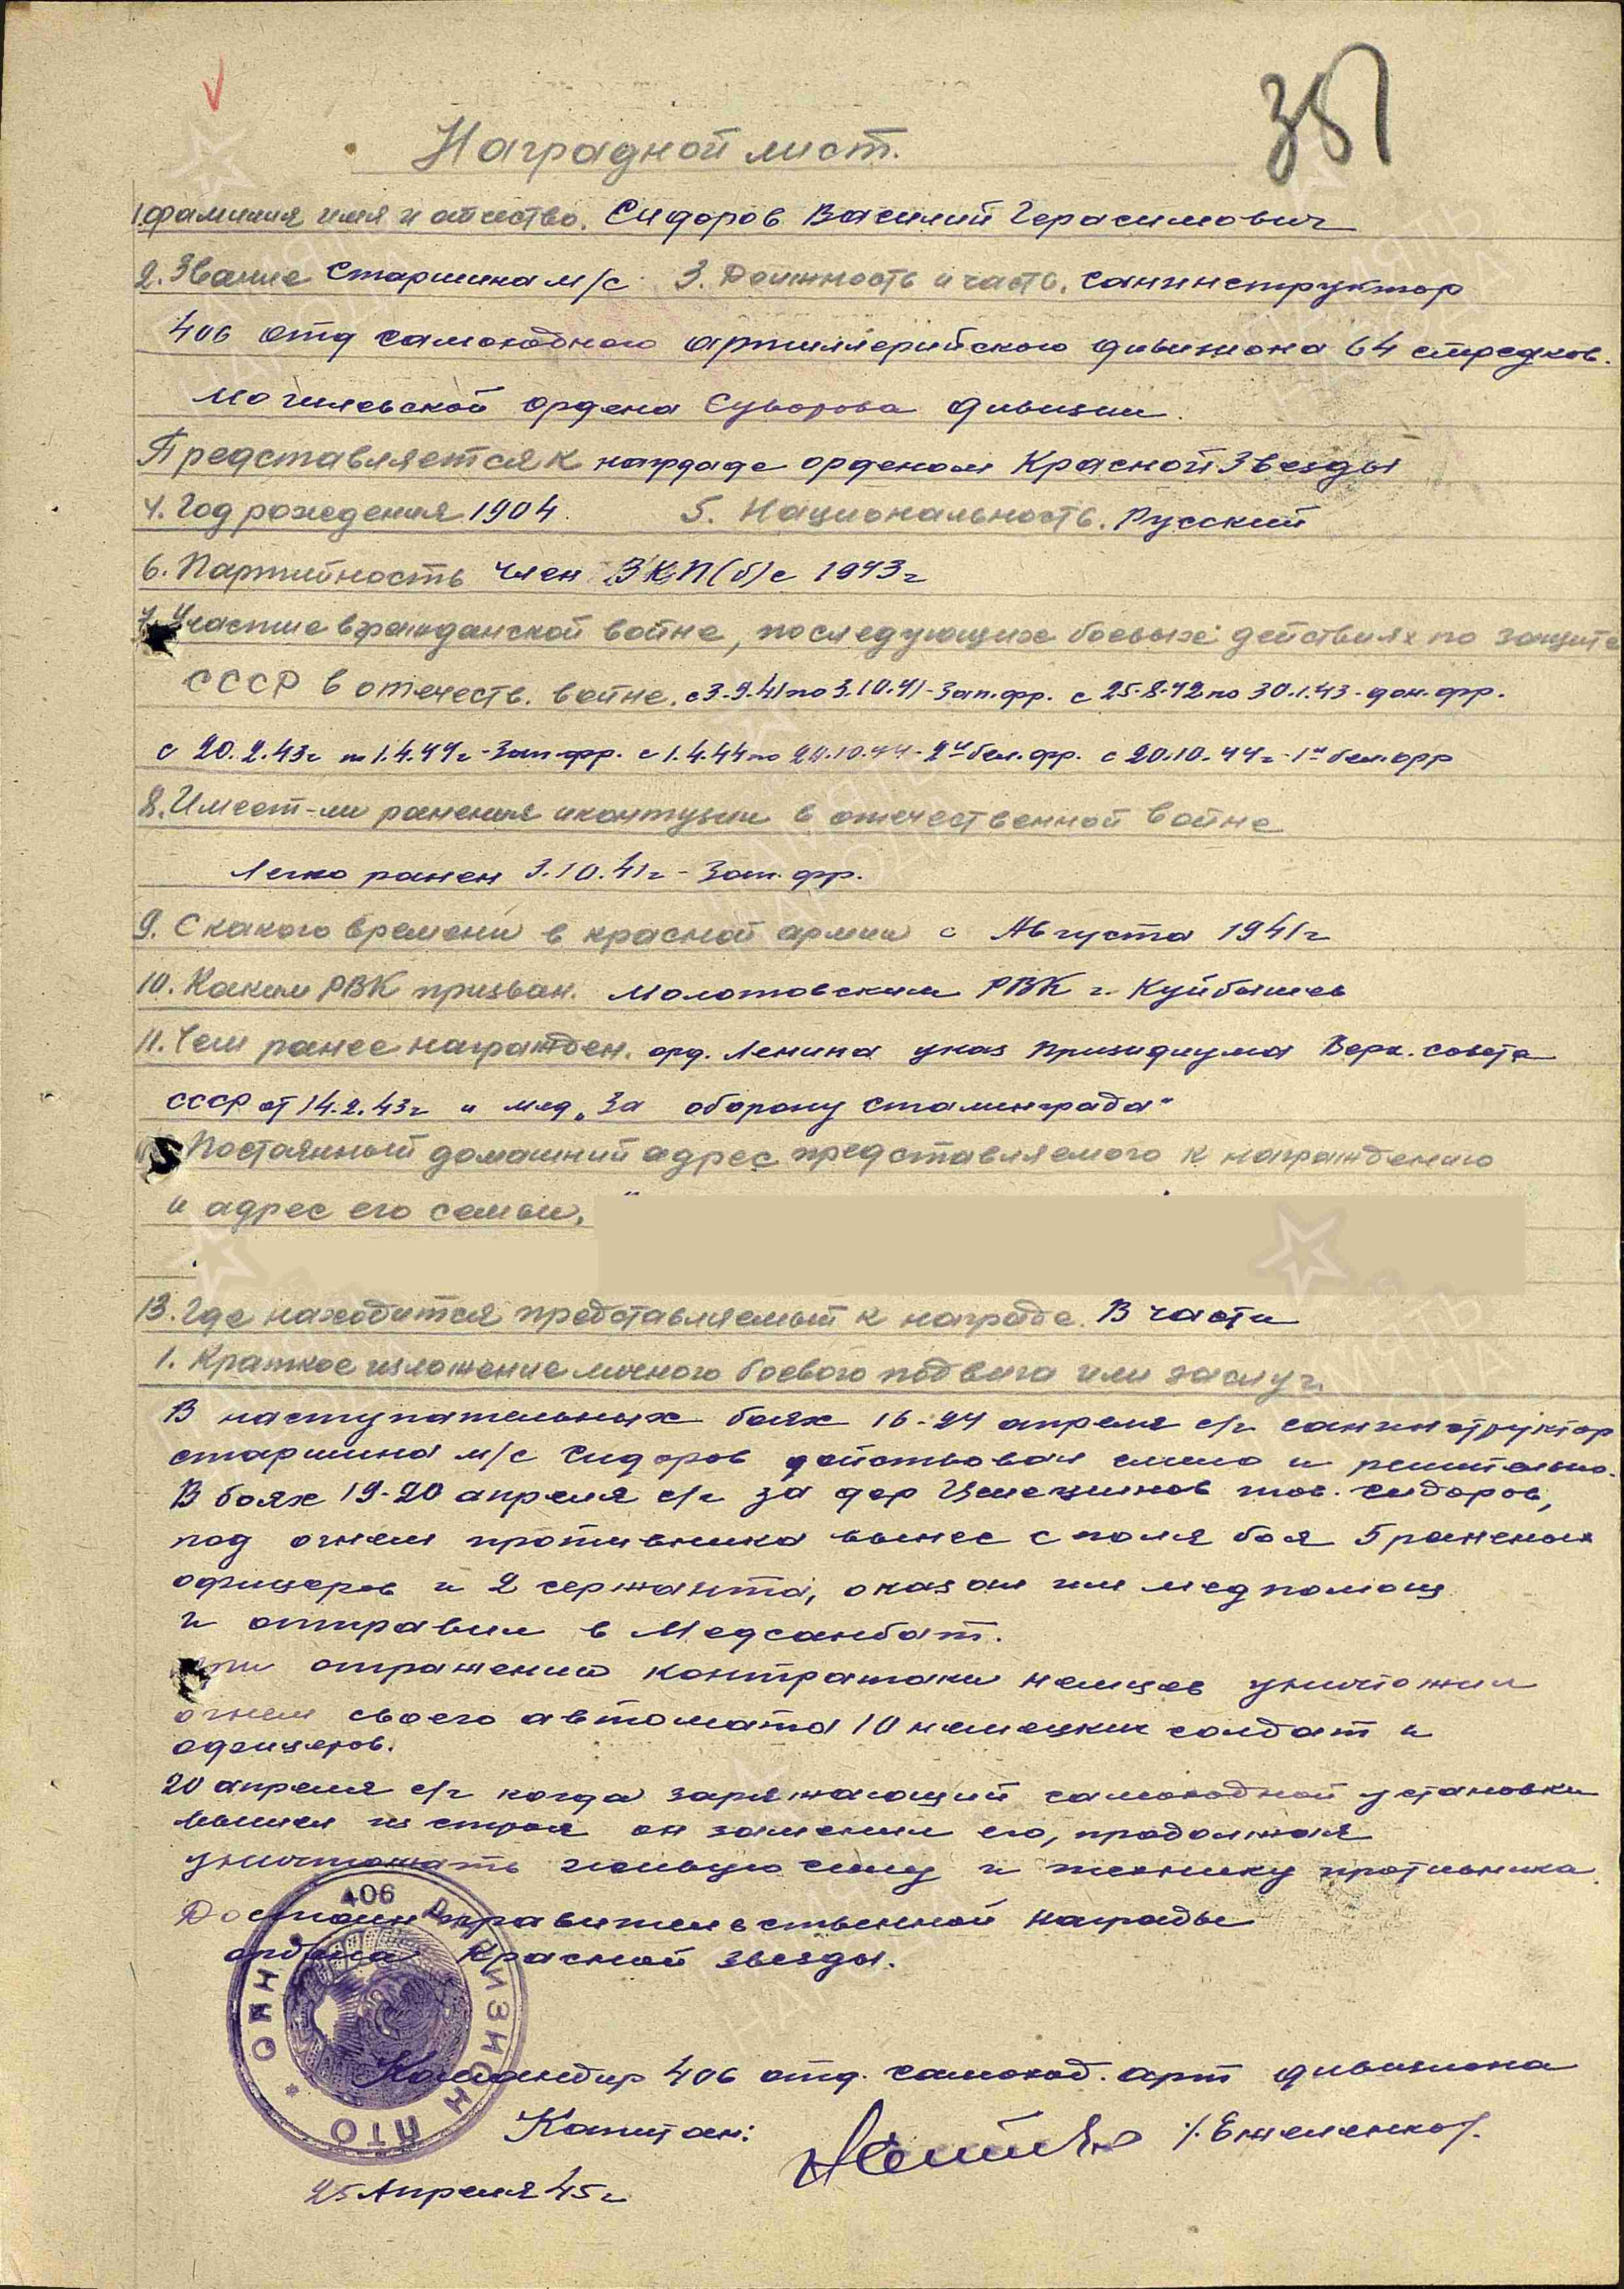 Наградной лист.
1. Фамилия имя и отчество. Сидоров Василий Герасимович
2. Звание Старшина м/с 3. Должность и часть. Санинструктор
406 отд самоходного артиллерийского дивизиона 64 стрелков.
Могилевской ордена Суворова дивизии.
Представляется к награде орденом Красной Звезды
4. Год рождения 1904. 5. Национальность. Русский
6. Партийность член ВКП(б) с 1943 г
7. Участие в гражданской войне, последующих боевых действиях по защите
СССР в отечеств. войне. с 3.9.41 по 3.10.41 - Зап. фр. с 25.8.42 по 30.1.43 - дон. фр.
с 20.2.43г по 1.4.44г - Зап. фр. с 1.4.44 по 20.10.44 - 2й бел. фр. с 20.10.44г - 1й бел. фр
8. Имеет-ли ранения и контузии в отечественной войне
Легко ранен 3.10.41г - Зап. фр.
9. С какого времени в красной армии с Августа 1941г
10. Каким РВК призван. Молотовским РВК г. Куйбышев
11. Чем ранее награжден. орд. Ленина указ Призидиума Верх. совета
СССР от 14.2.43г и мед „За оборону Сталинграда"
Постоянный домашний адрес представляемого к награждению
и адрес его семьи.
13. Где находится представляемый к награде. В части
1. Краткое изложение личного боевого подвига или заслуг.
В наступательных боях 16-24 апреля с/г санинструктор
старшина м/с Сидоров действовал смело и решительно.
В боях 19-20 апреля с/г за дер тов. Сидоров,
под огнем противника вынес с поля боя 5 раненых
офицеров и 2 сержанта, оказал им медпомощ
и отправил в Медсанбат.
При отражении контратаки немцев уничтожил
огнем своего автомата 10 немецких солдат и
офицеров.
20 апреля с/г когда заряжающий самоходной установки
вышел из строя он заменил его, продолжая
уничтожать живую силу и технику противника.
Достоин правительственной награды
ордена Красной звезды.
Командир 406 отд. самоход. арт дивизиона
Капитан: /Емельненко/.
25 Апреля 45г
406 ДИВИЗИОН ПТО